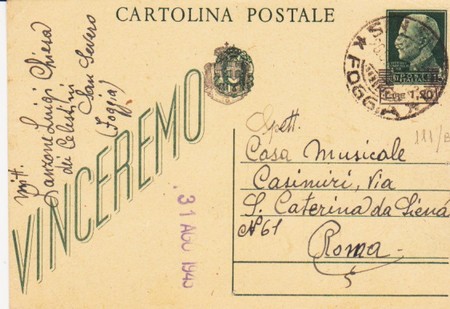 CARTOLINA POSTALE
Mitt.
Sanzone Luigi Chiesa
di Celestini
San Severo
(Foggia)
VINCEREMO
FOGGIA
111/B
Spett.
Casa Musicale
Casimiri, Via
S. Caterina da Siena
N° 61
Roma
31 AGO 1945